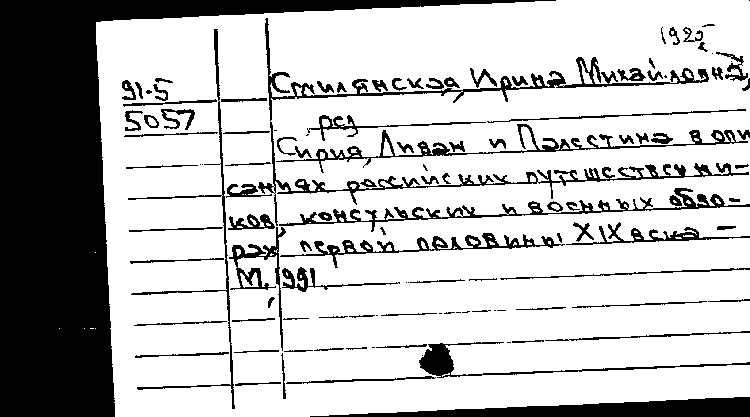 1925
91-5
Смилянская, Ирина Михайловна,
5057
рез
Сирия, Ливан и Палестина в опи
саниях российских путешественни-
ков, консульских и военных обзо-
рах первой половины XIX века -
М, 1991.